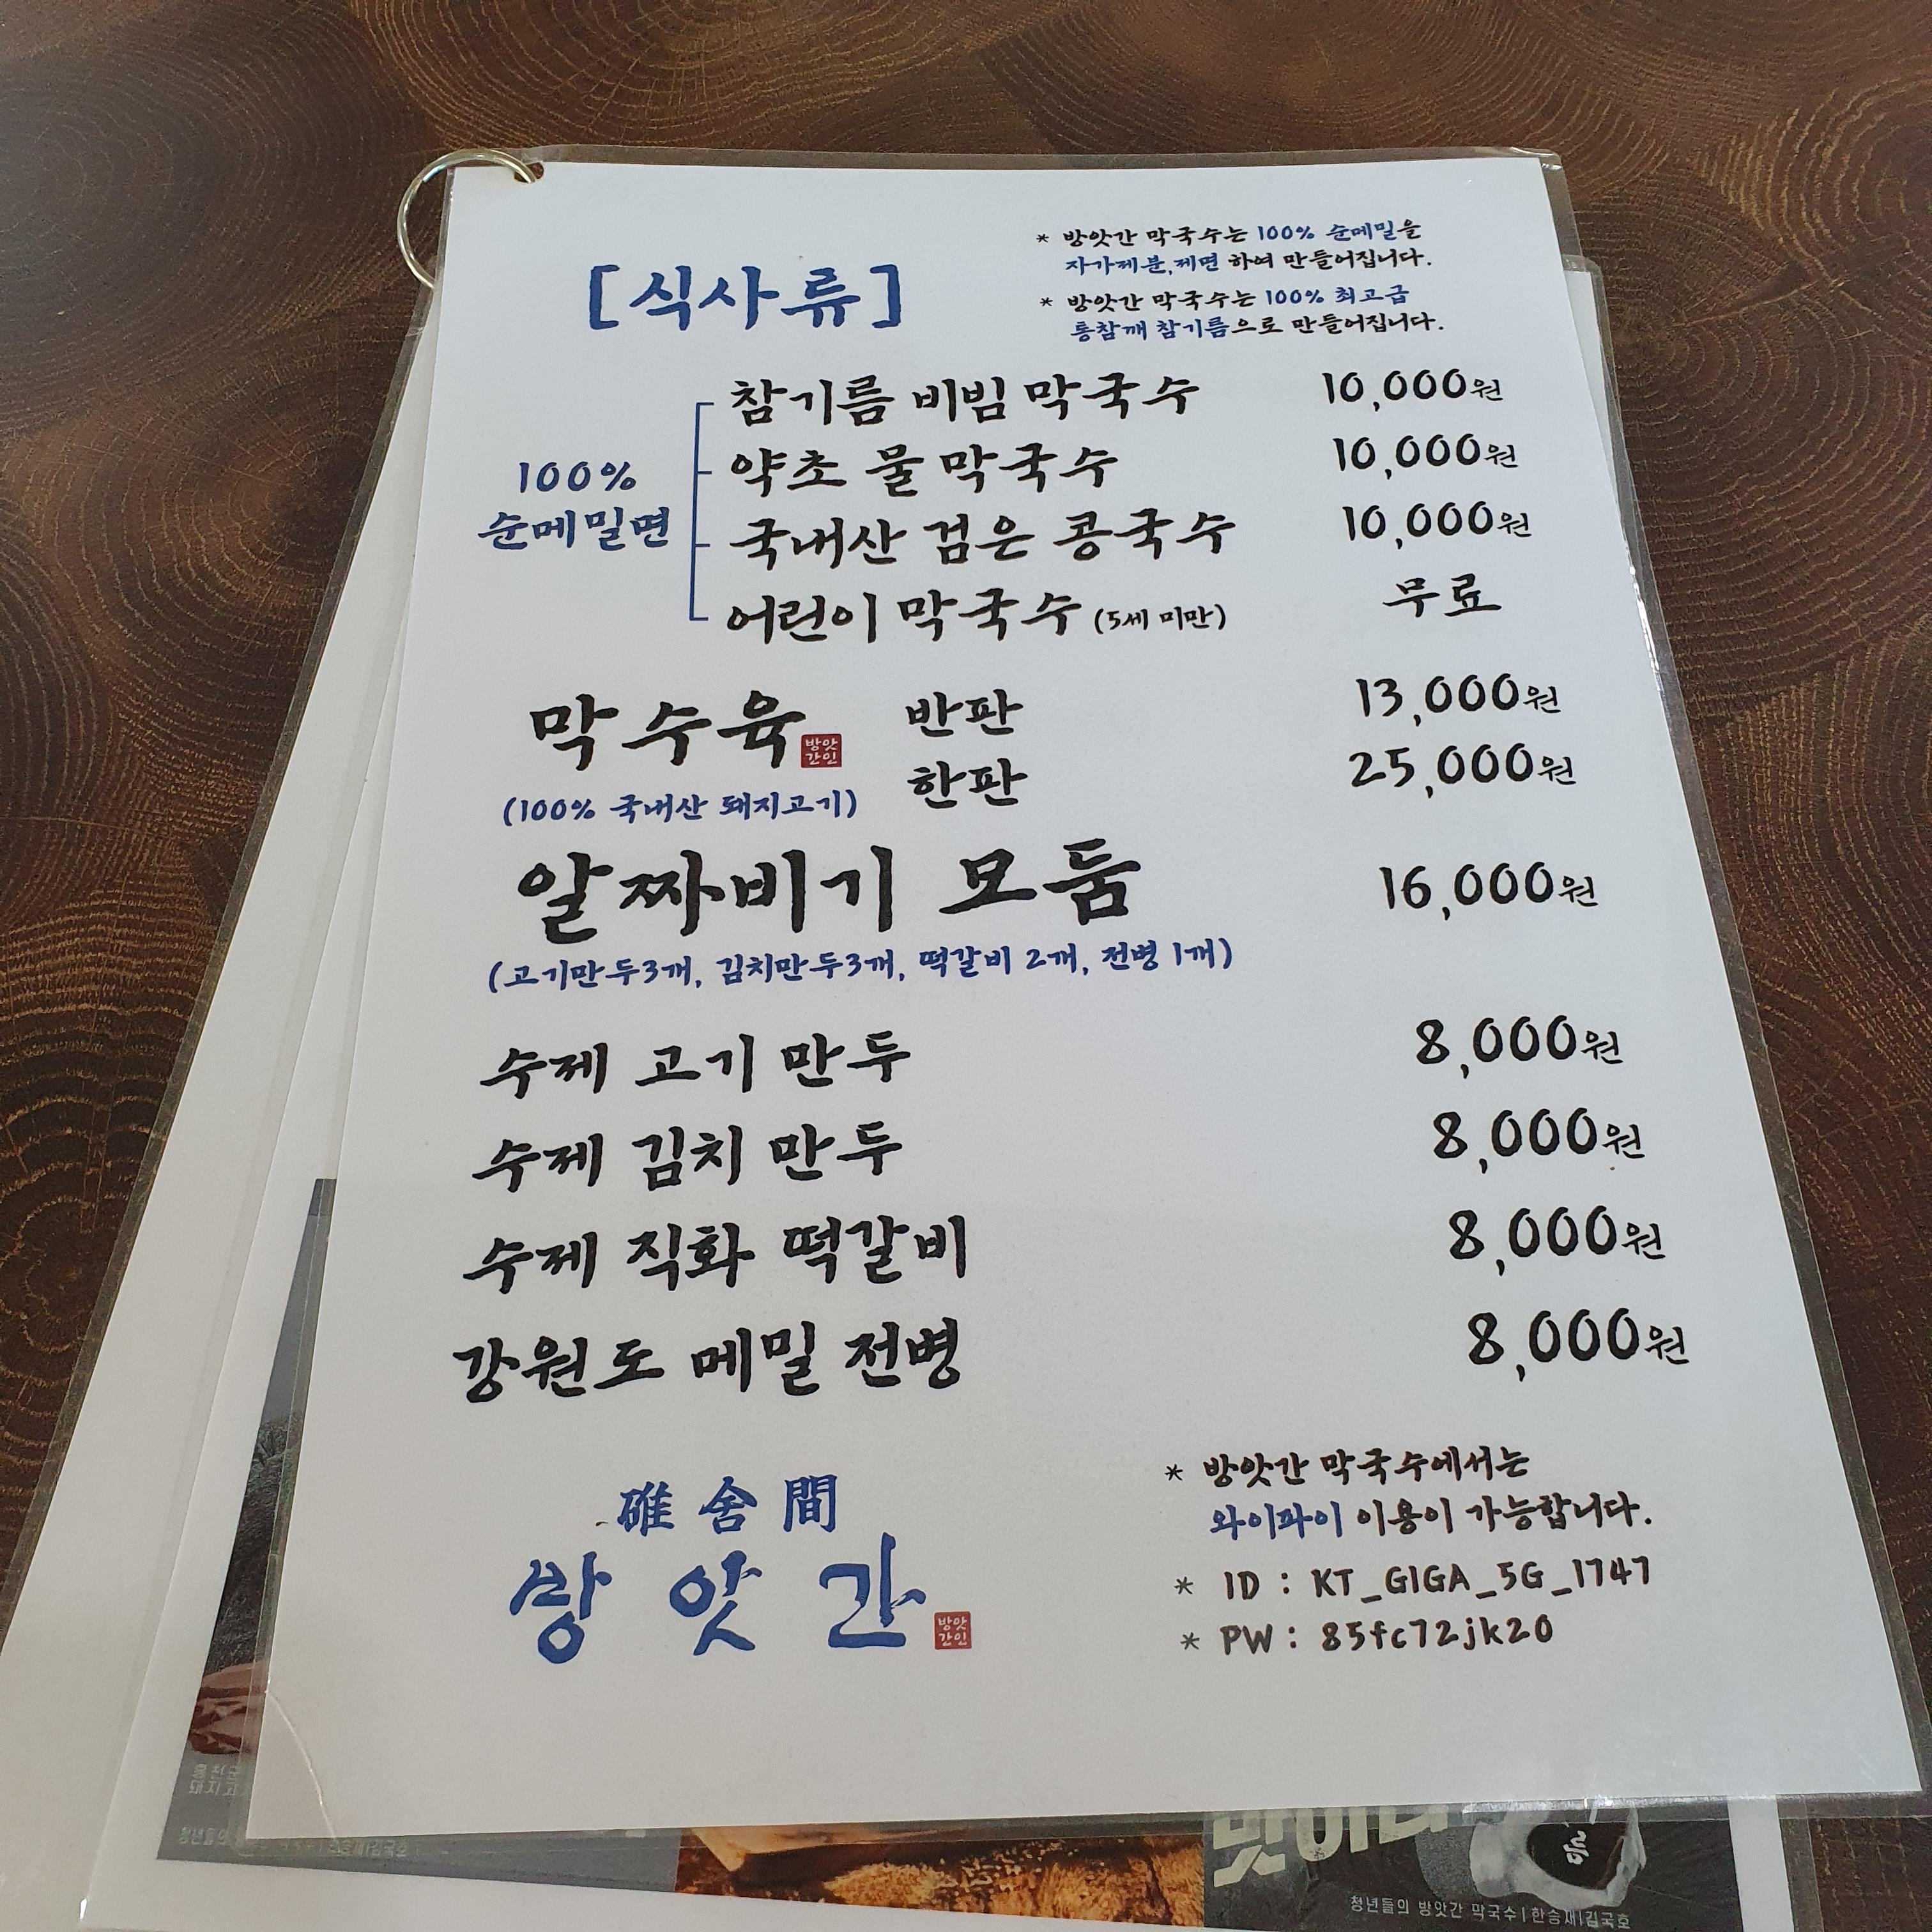 [식사류]
* 방앗간 막국수는 100% 순메밀을
자가제분,제면 하여 만들어집니다.
* 방앗간 막국수는 100% 최고급
통참깨 참기름으로 만들어집니다.
100%
순메밀면
참기름 비빔 막국수 10,000원
약초 물 막국수 10,000원
국내산 검은 콩국수 10,000원
어린이 막국수 (5세 미만) 무료
막수육 반판 13,000원
방앗
간인
한판 25,000원
(100% 국내산 돼지고기)
알짜비기 모둠 16,000원
(고기만두3개, 김치만두3개, 떡갈비 2개, 전병 1개)
수제 고기 만두 8,000원
수제 김치 만두 8,000원
수제 직화 떡갈비 8,000원
강원도 메밀 전병 8,000원
碓舍間
방앗간
방앗
간인
* 방앗간 막국수에서는
와이파이 이용이 가능합니다.
* ID : KT_GIGA_5G_1747
* PW : 85fc72jk20
돼지고
청년들의
청년들의 방앗간 막국수|한승재|김국호